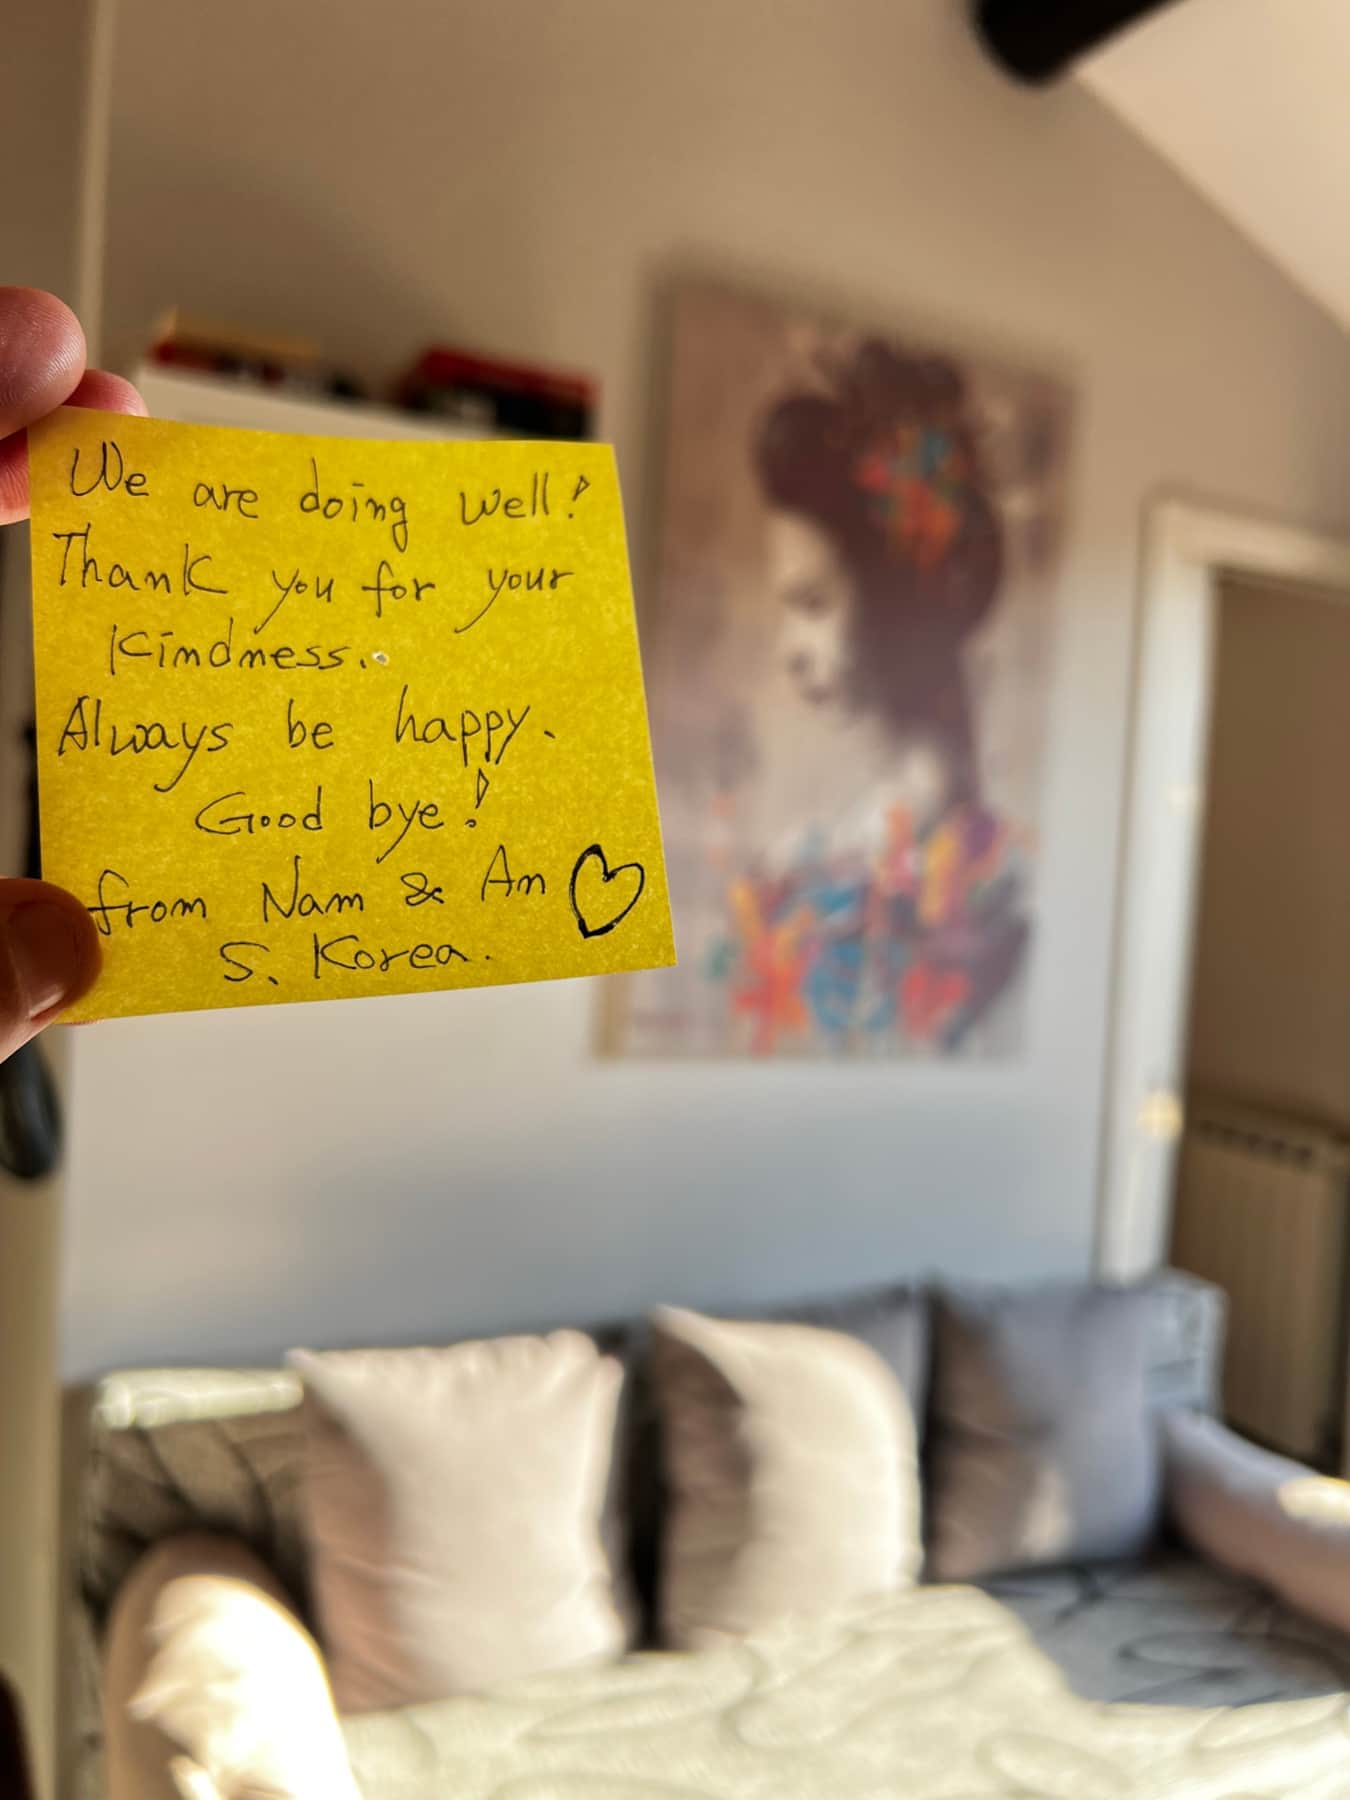 We are doing well!
Thank you for your
kindness.
Always be happy.
Good bye!
from Nam & An ♡
S. Korea.